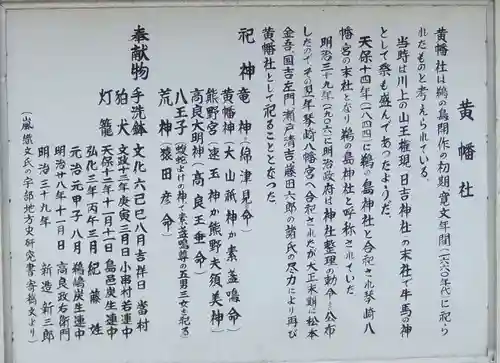 黄幡社
黄幡社は鵜の島開作の初期寛文年間(一六六〇年代)に祀ら
れたものと考えられている。
当時は川上の山王権現、日吉神社の末社で牛馬の神
として祭も盛んであったようだ。
天保十四年(一八四四)に鵜の島神社と合祀され琴崎八
幡宮の末社となり鵜の島神社と呼称されていた。
明治三十九年(一九〇六)に明治政府は神社整理の勅令を公布
したので、その翌年琴崎八幡宮へ合祀されたが大正末期に松本
金吾、国吉左門、瀬戸清吉、藤田六郎の諸氏の尽力により再び
黄幡社として祀ることとなった。
祀神 竜神(綿津見命)
黄幡神(大山祇神か素盞鳴命)
熊野宮(速玉神か熊野夫須美神)
高良大明神(高良玉垂命)
八王子(蝮蛇よけの神、素盞鳴尊の五男三女を祀る)
荒神(猿田彦命)
奉献物 手洗鉢 文化六己巳八月吉祥日 当村
狛犬 文政十三年庚寅三月日 小串村若連中
灯籠 天保十二年十一月十一日 島邑炭生連中
弘化三年丙午三月 紀藤姓
元治元甲子八月 鵜嶋炭生連中
明治廿八年十一月日 高良政右衛門
明治三十九年 新造新三郎